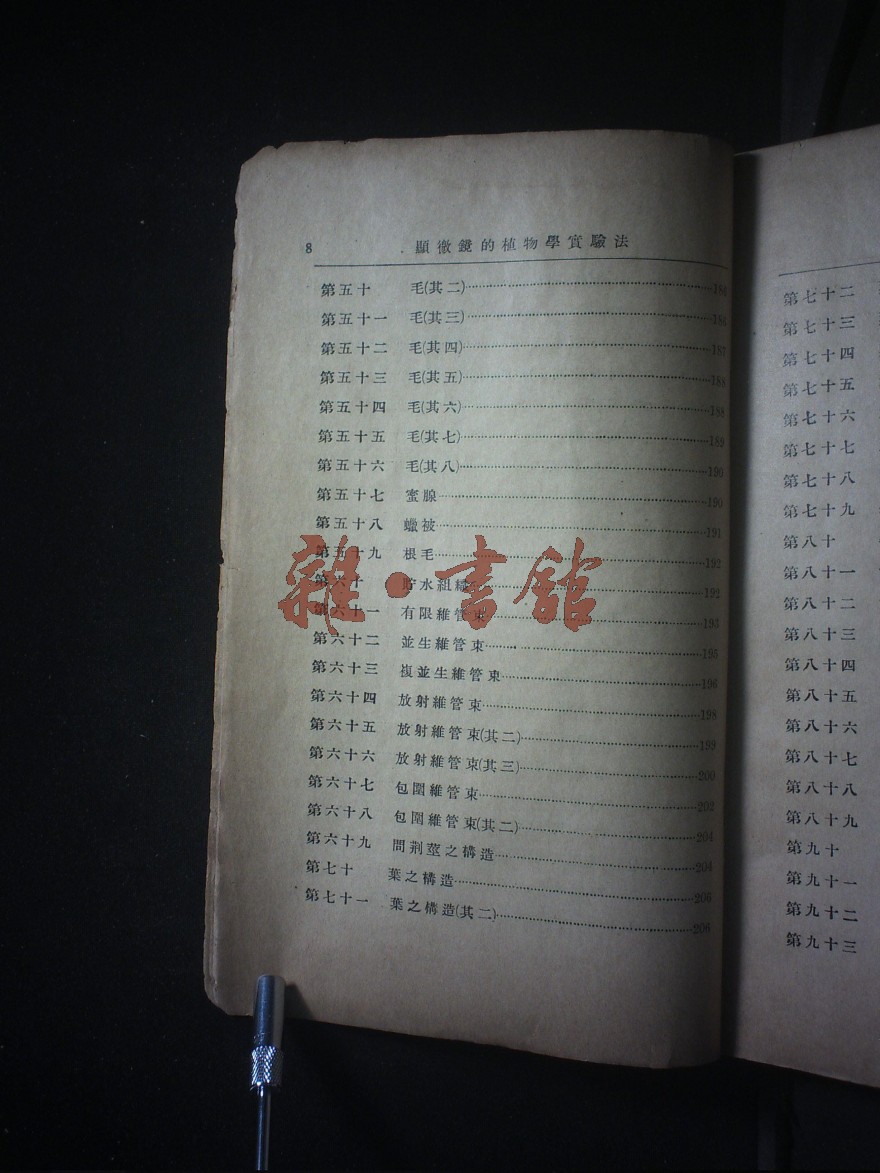 8 顯微鏡的植物學實驗法
第五十 毛(其二)
第五十一 毛(其三) 186
第五十二 毛(其四) 187
第五十三 毛(其五) 188
第五十四 毛(其六) 188
第五十五 毛(其七) 189
第五十六 毛(其八) 190
第五十七 蜜腺 190
第五十八 蠟被 191
第五十九 根毛 192
第六十 貯水組織 192
第六十一 有限維管束 193
第六十二 並生維管束 195
第六十三 複並生維管束 196
第六十四 放射維管束 198
第六十五 放射維管束(其二) 199
第六十六 放射維管束(其三) 200
第六十七 包圍維管束 202
第六十八 包圍維管束(其二) 204
第六十九 問荊莖之構造 204
第七十 葉之構造 206
第七十一 葉之構造(其二) 206
雜·書館
第七十二
第七十三
第七十四
第七十五
第七十六
第七十七
第七十八
第七十九
第八十
第八十一
第八十二
第八十三
第八十四
第八十五
第八十六
第八十七
第八十八
第八十九
第九十
第九十一
第九十二
第九十三